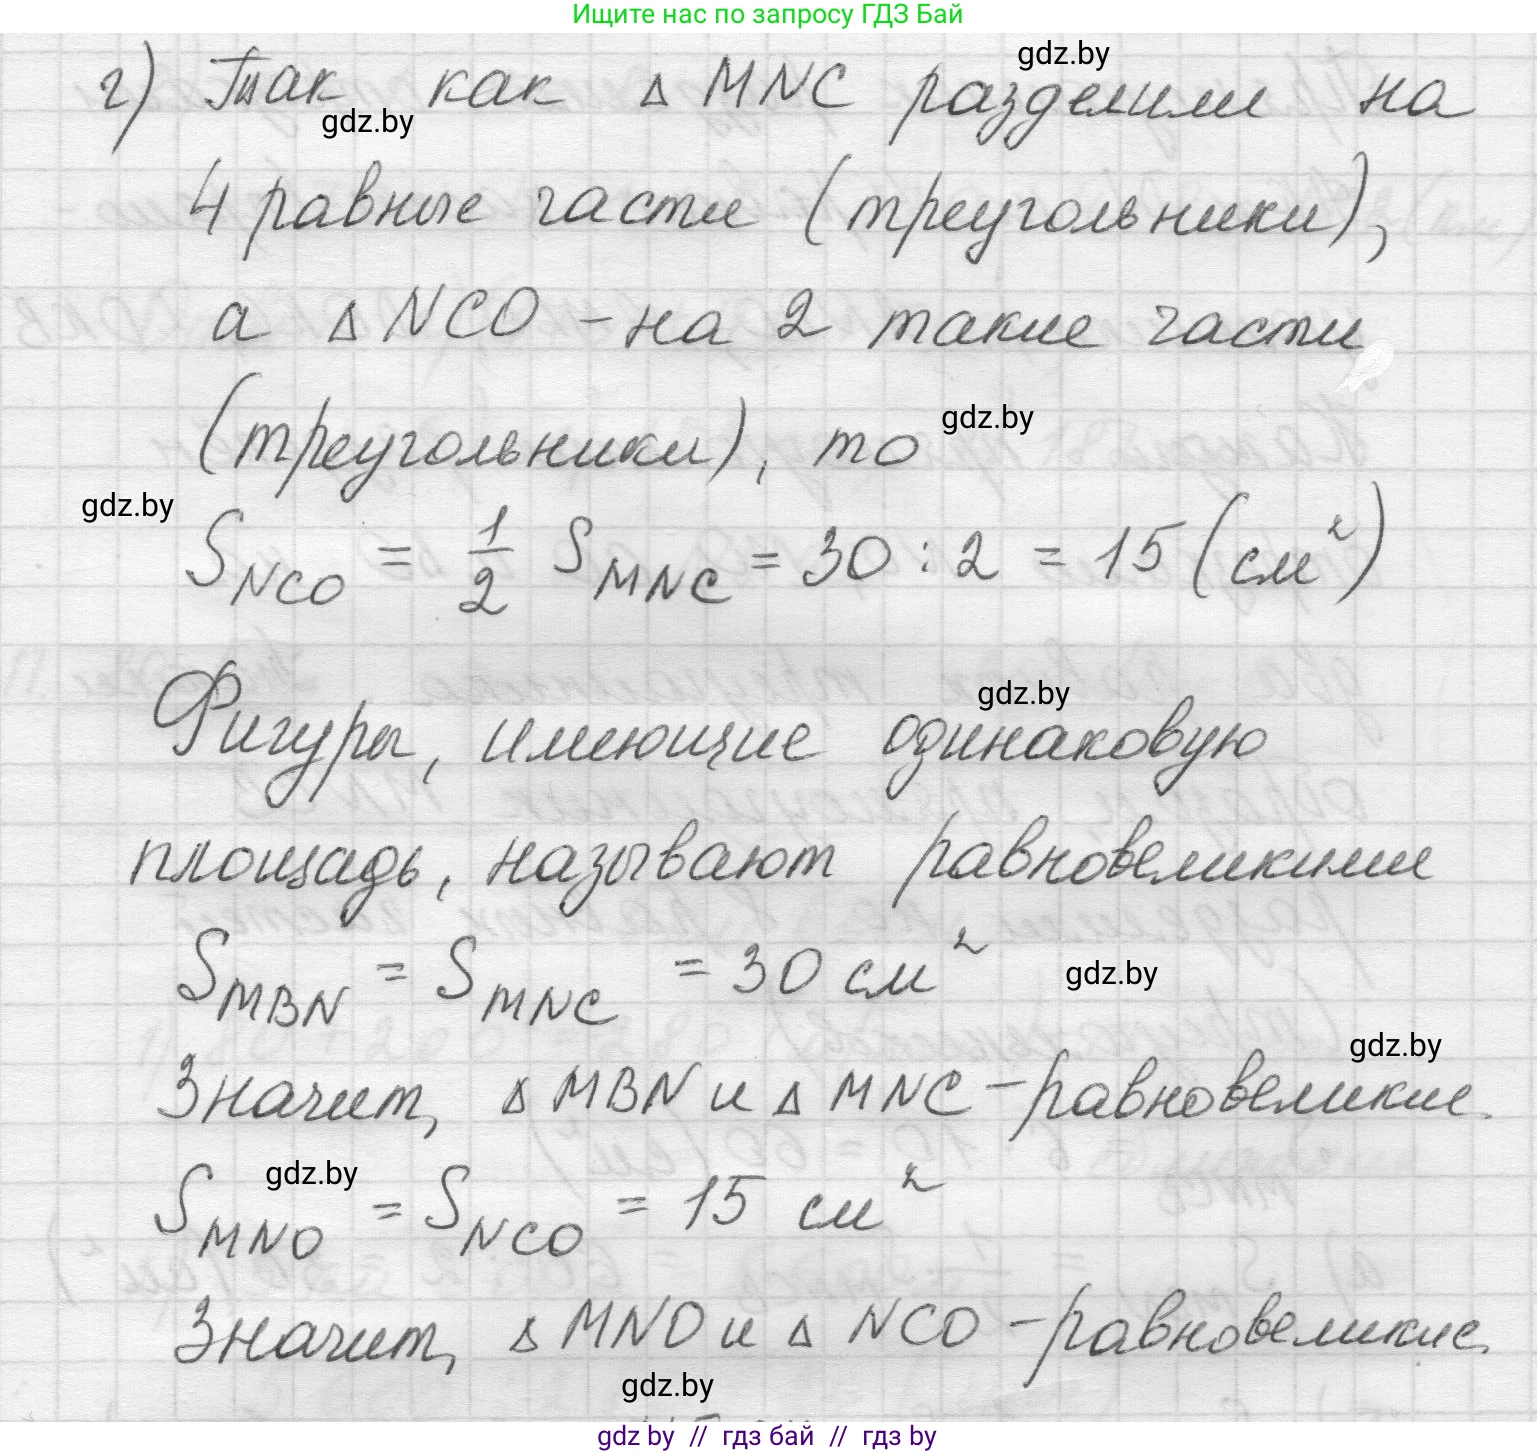 Ищите нас по запросу ГДЗ Бай
gdz.by
г) Так как △ MNC разделили на
gdz.by
4 равные части (треугольники),
а △ NCO – на 2 такие части
(треугольники), то
gdz.by
gdz.by
S_NCO = 1/2 S_MNC = 30 : 2 = 15 (см²)
gdz.by
Фигуры, имеющие одинаковую
площадь, называют равновеликими
S_MBN = S_MNC = 30 см²
gdz.by
gdz.by
Значит, △ MBN и △ MNC – равновеликие.
gdz.by
S_MNO = S_NCO = 15 см²
Значит, △ MNO и △ NCO – равновеликие.
gdz.by
gdz by // гдз бай // гдз by